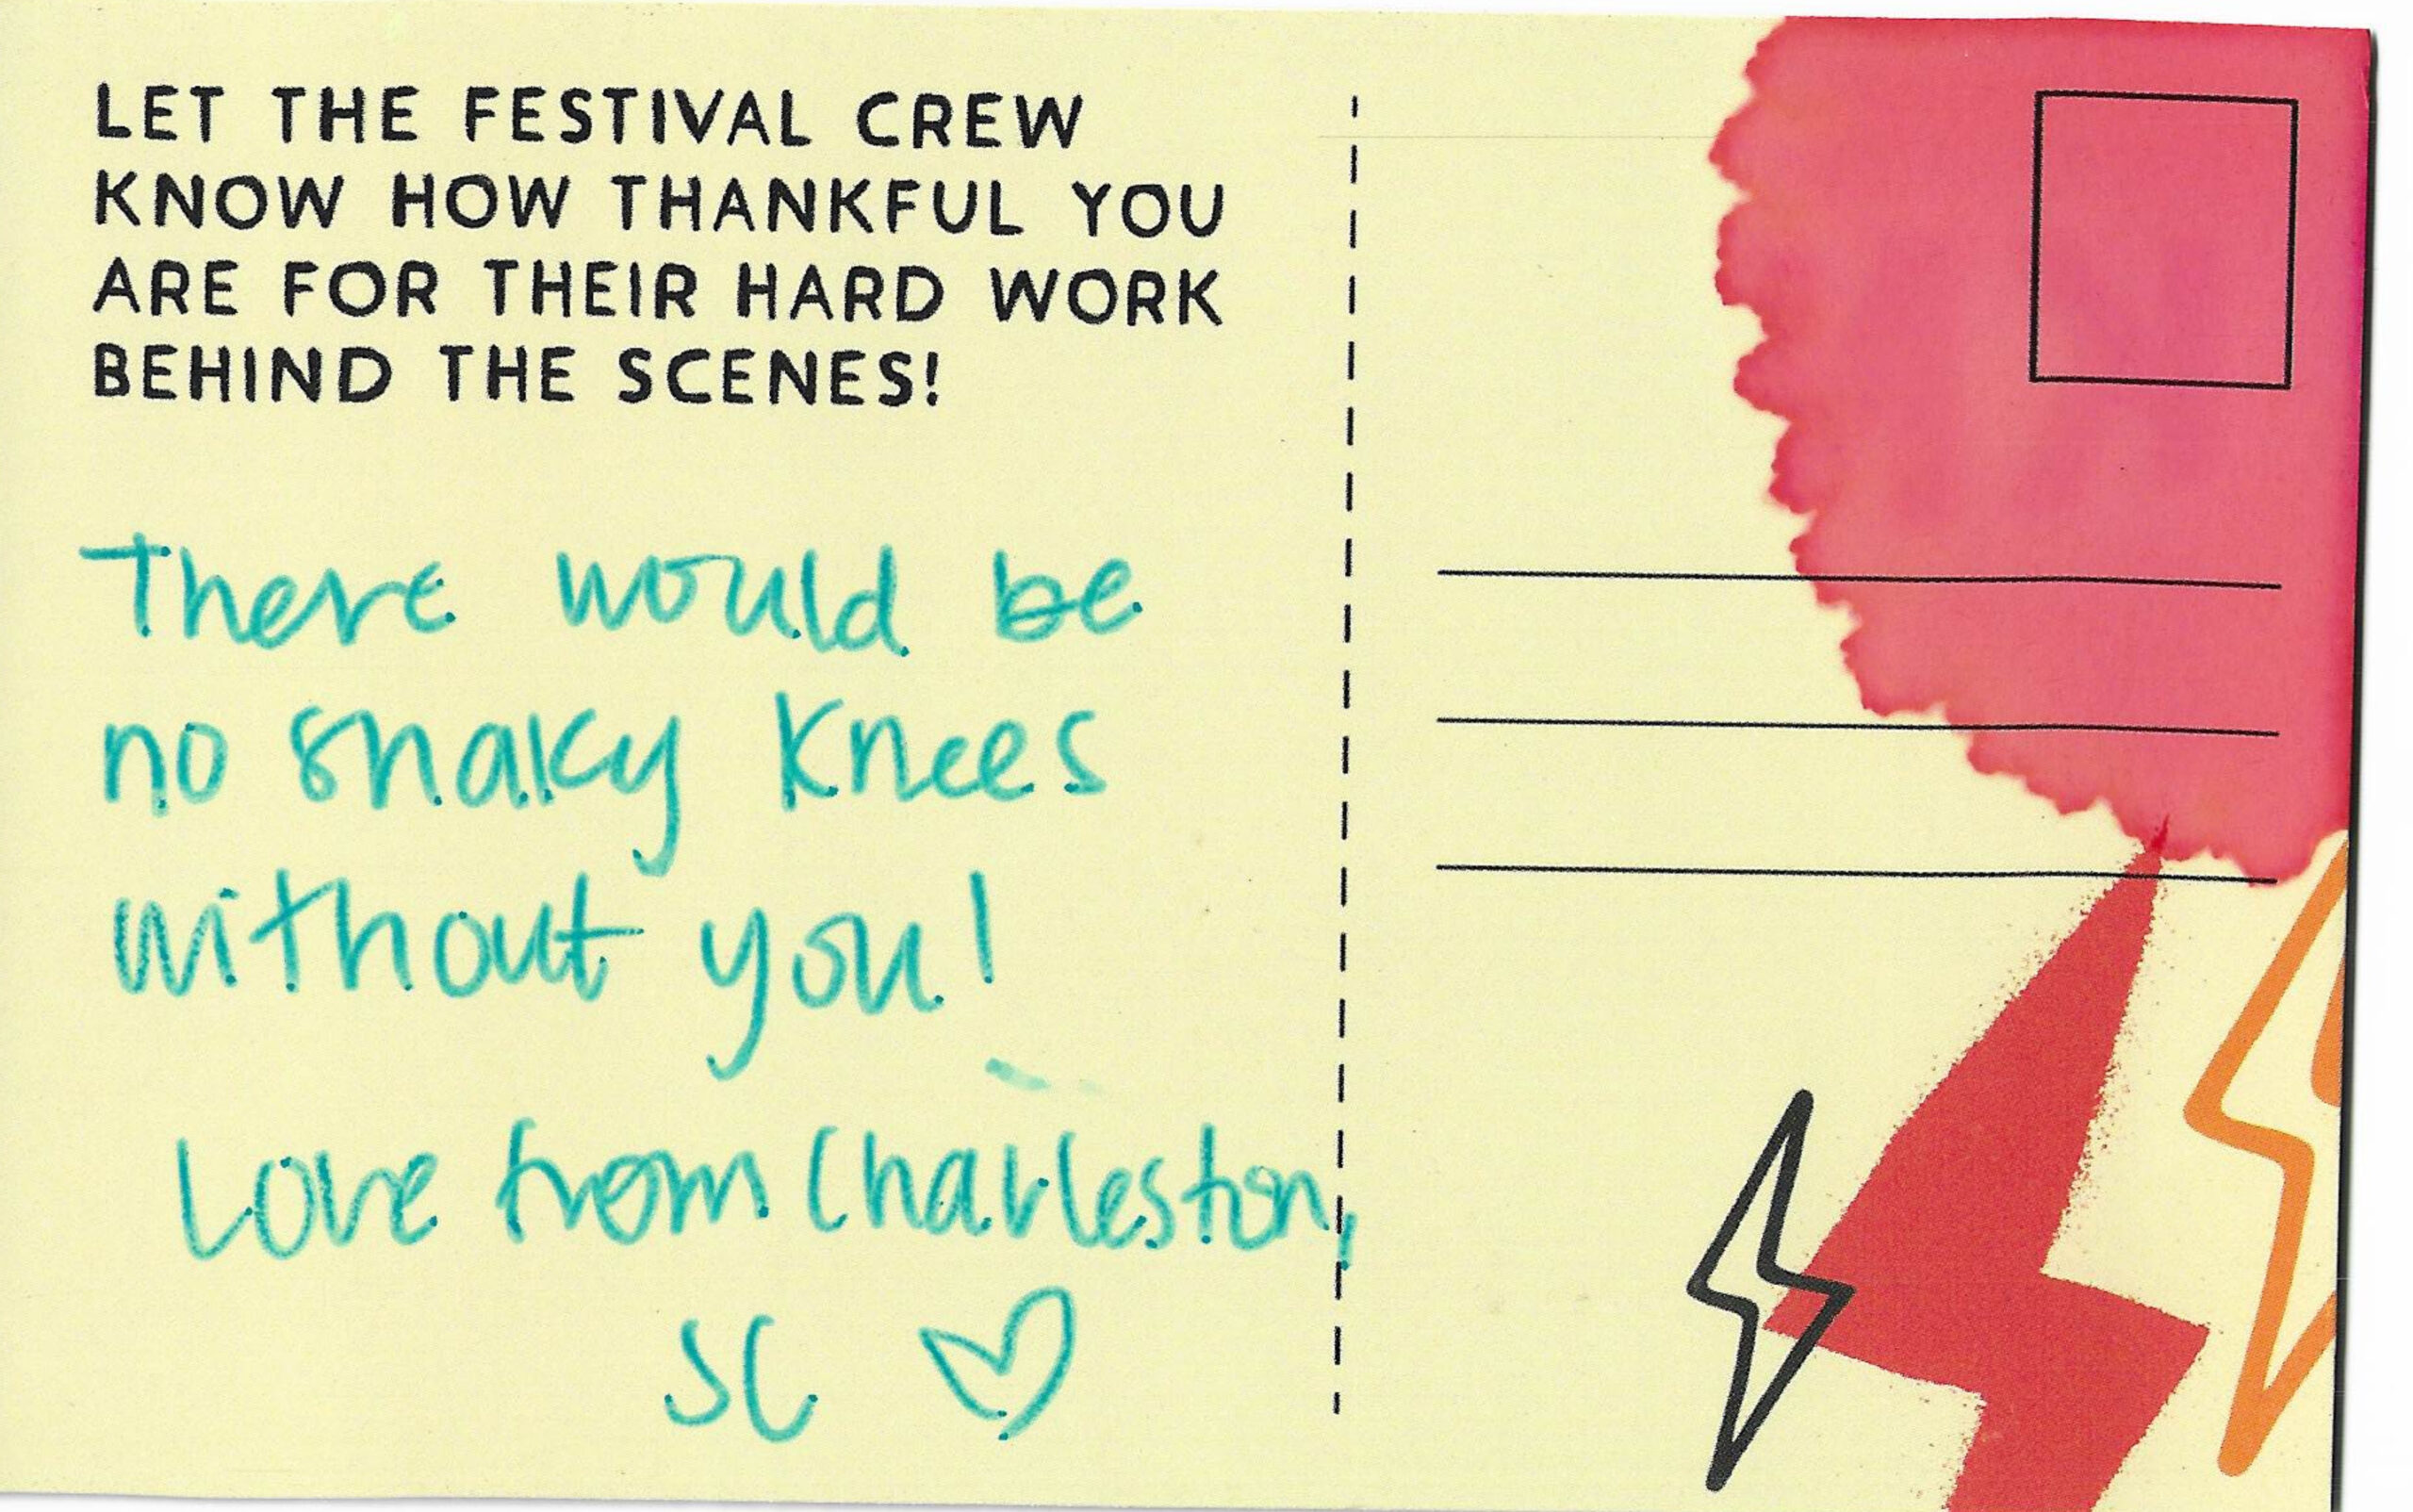 LET THE FESTIVAL CREW
KNOW HOW THANKFUL YOU
ARE FOR THEIR HARD WORK
BEHIND THE SCENES!
There would be
no shaky knees
without you!
Love from Charleston,
SC ♡